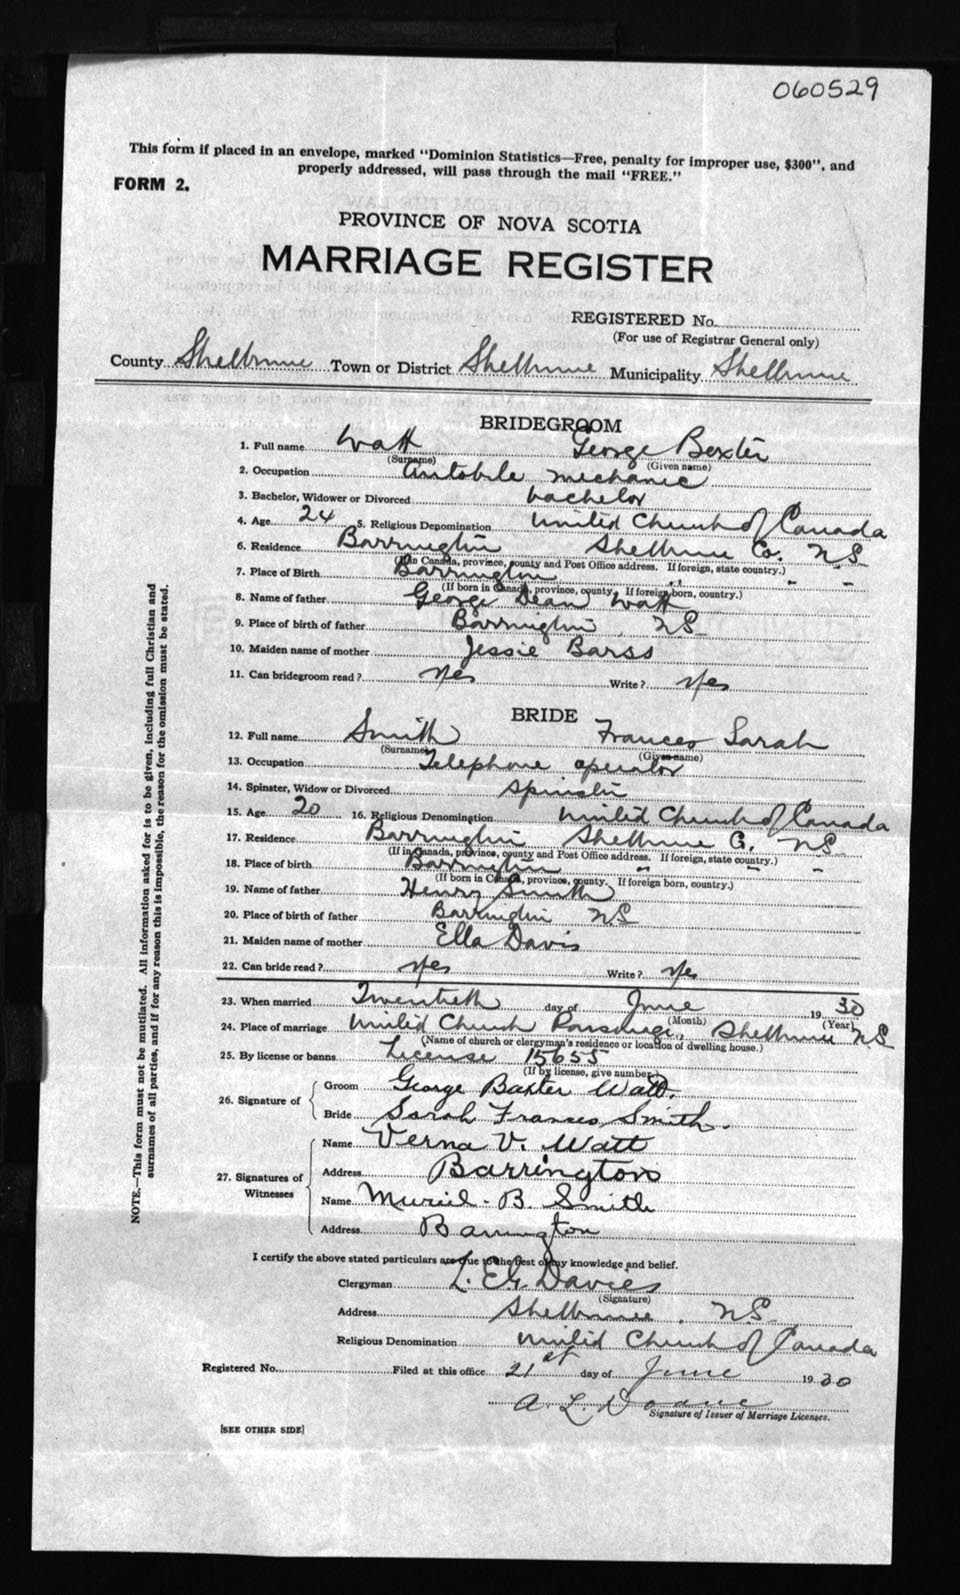 060529
This form if placed in an envelope, marked "Dominion Statistics—Free, penalty for improper use, $300", and
properly addressed, will pass through the mail "FREE."
FORM 2.
PROVINCE OF NOVA SCOTIA
MARRIAGE REGISTER
REGISTERED No.
(For use of Registrar General only)
County Shelburne Town or District Shelburne Municipality Shelburne
BRIDEGROOM
1. Full name Watt George Baxter
(Surname) (Given name)
2. Occupation Autobile mechanic
3. Bachelor, Widower or Divorced bachelor
4. Age 24 5. Religious Denomination United Church of Canada
6. Residence Barrington Shelburne Co. N.S.
(If in Canada, province, county and Post Office address. If foreign, state country.)
7. Place of Birth Barrington " " "
(If born in Canada, province, county. If foreign born, country.)
8. Name of father George Dean Watt
9. Place of birth of father Barrington N.S.
10. Maiden name of mother Jessie Barss
11. Can bridegroom read? Yes Write? Yes
BRIDE
12. Full name Smith Frances Sarah
(Surname) (Given name)
13. Occupation Telephone operator
14. Spinster, Widow or Divorced spinster
15. Age 20 16. Religious Denomination United Church of Canada
17. Residence Barrington Shelburne Co. N.S.
(If in Canada, province, county and Post Office address. If foreign, state country.)
18. Place of birth Barrington " " "
(If born in Canada, province, county. If foreign born, country.)
19. Name of father Henry Smith
20. Place of birth of father Barrington N.S.
21. Maiden name of mother Ella Davis
22. Can bride read? Yes Write? Yes
23. When married Twentieth day of June 1930
(Month) (Year)
24. Place of marriage United Church Parsonage, Shelburne N.S.
(Name of church or clergyman's residence or location of dwelling house.)
25. By license or banns License 15655
(If by license, give number)
26. Signature of Groom George Baxter Watt.
Bride Sarah Frances Smith.
27. Signatures of Witnesses Name Verna V. Watt
Address Barrington
Name Muriel B. Smith
Address Barrington
I certify the above stated particulars are true to the best of my knowledge and belief.
Clergyman Davies
(Signature)
Address Shelburne, N.S.
Religious Denomination United Church of Canada
Registered No. Filed at this office 21st day of June 1930
A. L. Doane
Signature of Issuer of Marriage Licenses.
[SEE OTHER SIDE]
NOTE.—This form must not be mutilated. All information asked for is to be given, including full Christian and
surnames of all parties, and if for any reason this is impossible, the reason for the omission must be stated.